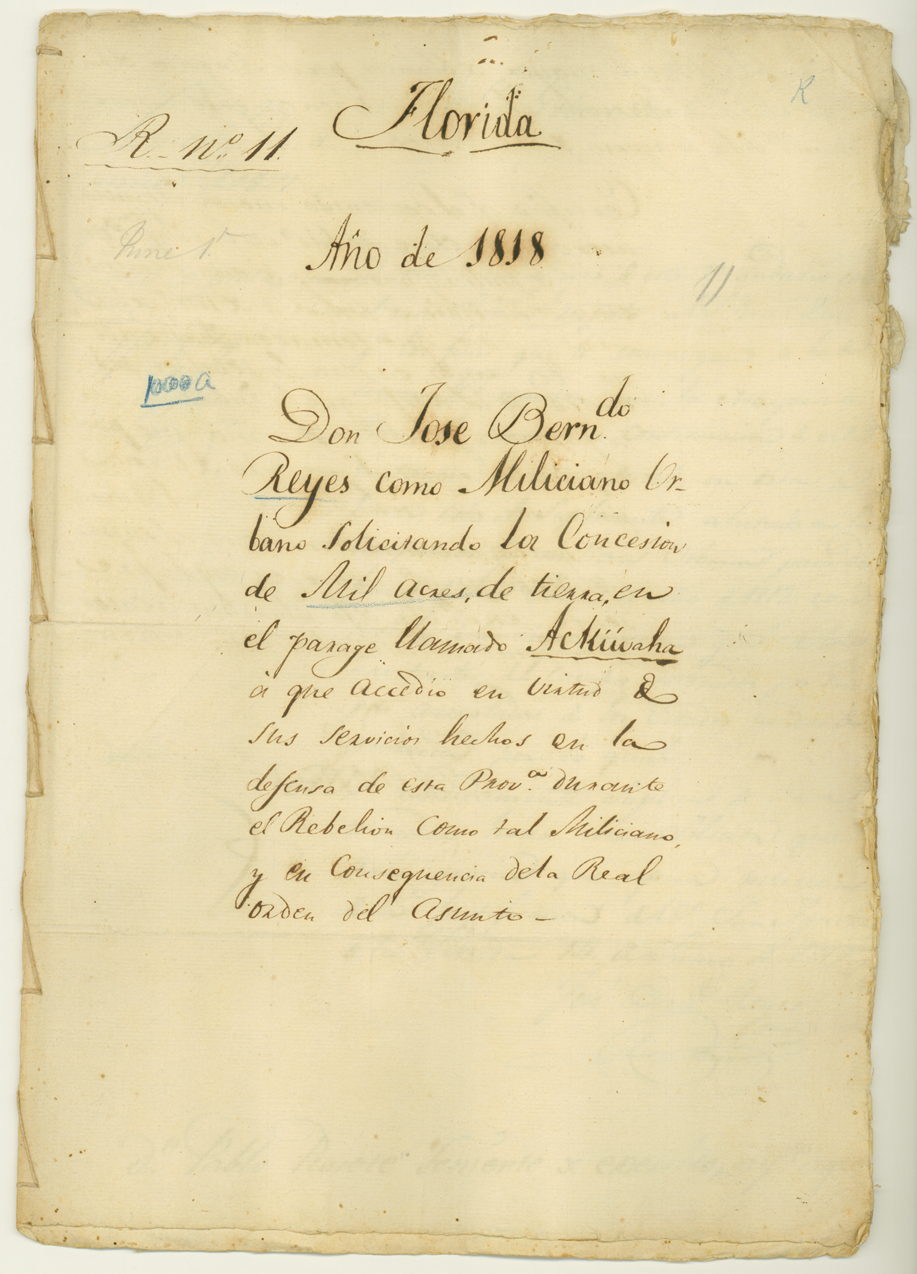 Florida
R. nº 11.
R
Año de 1818
11
Don Jose Bern.do
Reyes como Miliciano Ur-
bano Solicitando la Concesion
de Mil acres, de tierra, en
el parage llamado Ackuwaha
a que accedio en virtud de
sus servicios hechos en la
defensa de esta Prov.a durante
el Rebelion como tal Miliciano,
y en Consequencia dela Real
orden del Asunto -